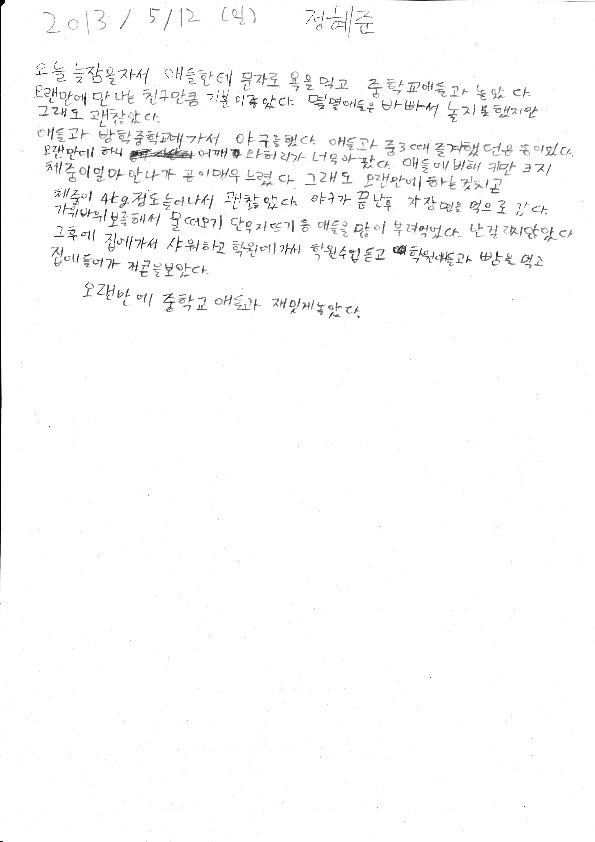 2013 / 5/12 (일) 정혜준
오늘 늦잠을자서 애들한테 문자로 욕을 먹고 중학교애들과 놀았다.
오랜만에 만나는 친구만큼 기분이좋았다. 몇몇애들은 바빠서 놀지못했지만
그래도 괜찮았다.
애들과 방학중학교에가서 야구를했다. 애들과 중3때 즐겨했던운동이었다.
오랜만에 하니 어깨와 허리가 너무아팠다. 애들에 비해 키만 크지
체중이얼마안나가 공이매우느렸다. 그래도 오랜만에 하는것치곤
체중이 4kg정도늘어나서 괜찮았다. 야구가 끝난후 자장면을먹으로 갔다.
가위바위보를해서 물떠오기 단무지뜨기등 애들을 많이 부려먹었다. 난걸리지않았다
그후에 집에가서 샤워하고 학원에가서 학원수업듣고 학원애들과 빵을 먹고
집에들어가 개콘을보았다.
오랜만에 중학교 애들과 재밌게놀았다.